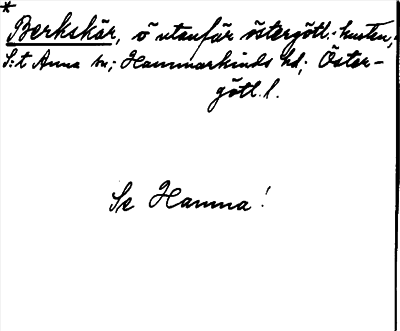 *
Berkskär, ö utanför östergötl.-kusten,
S:t Anna sn; Hammarkinds hd; Öster-
götl. l.
Se Hamna!